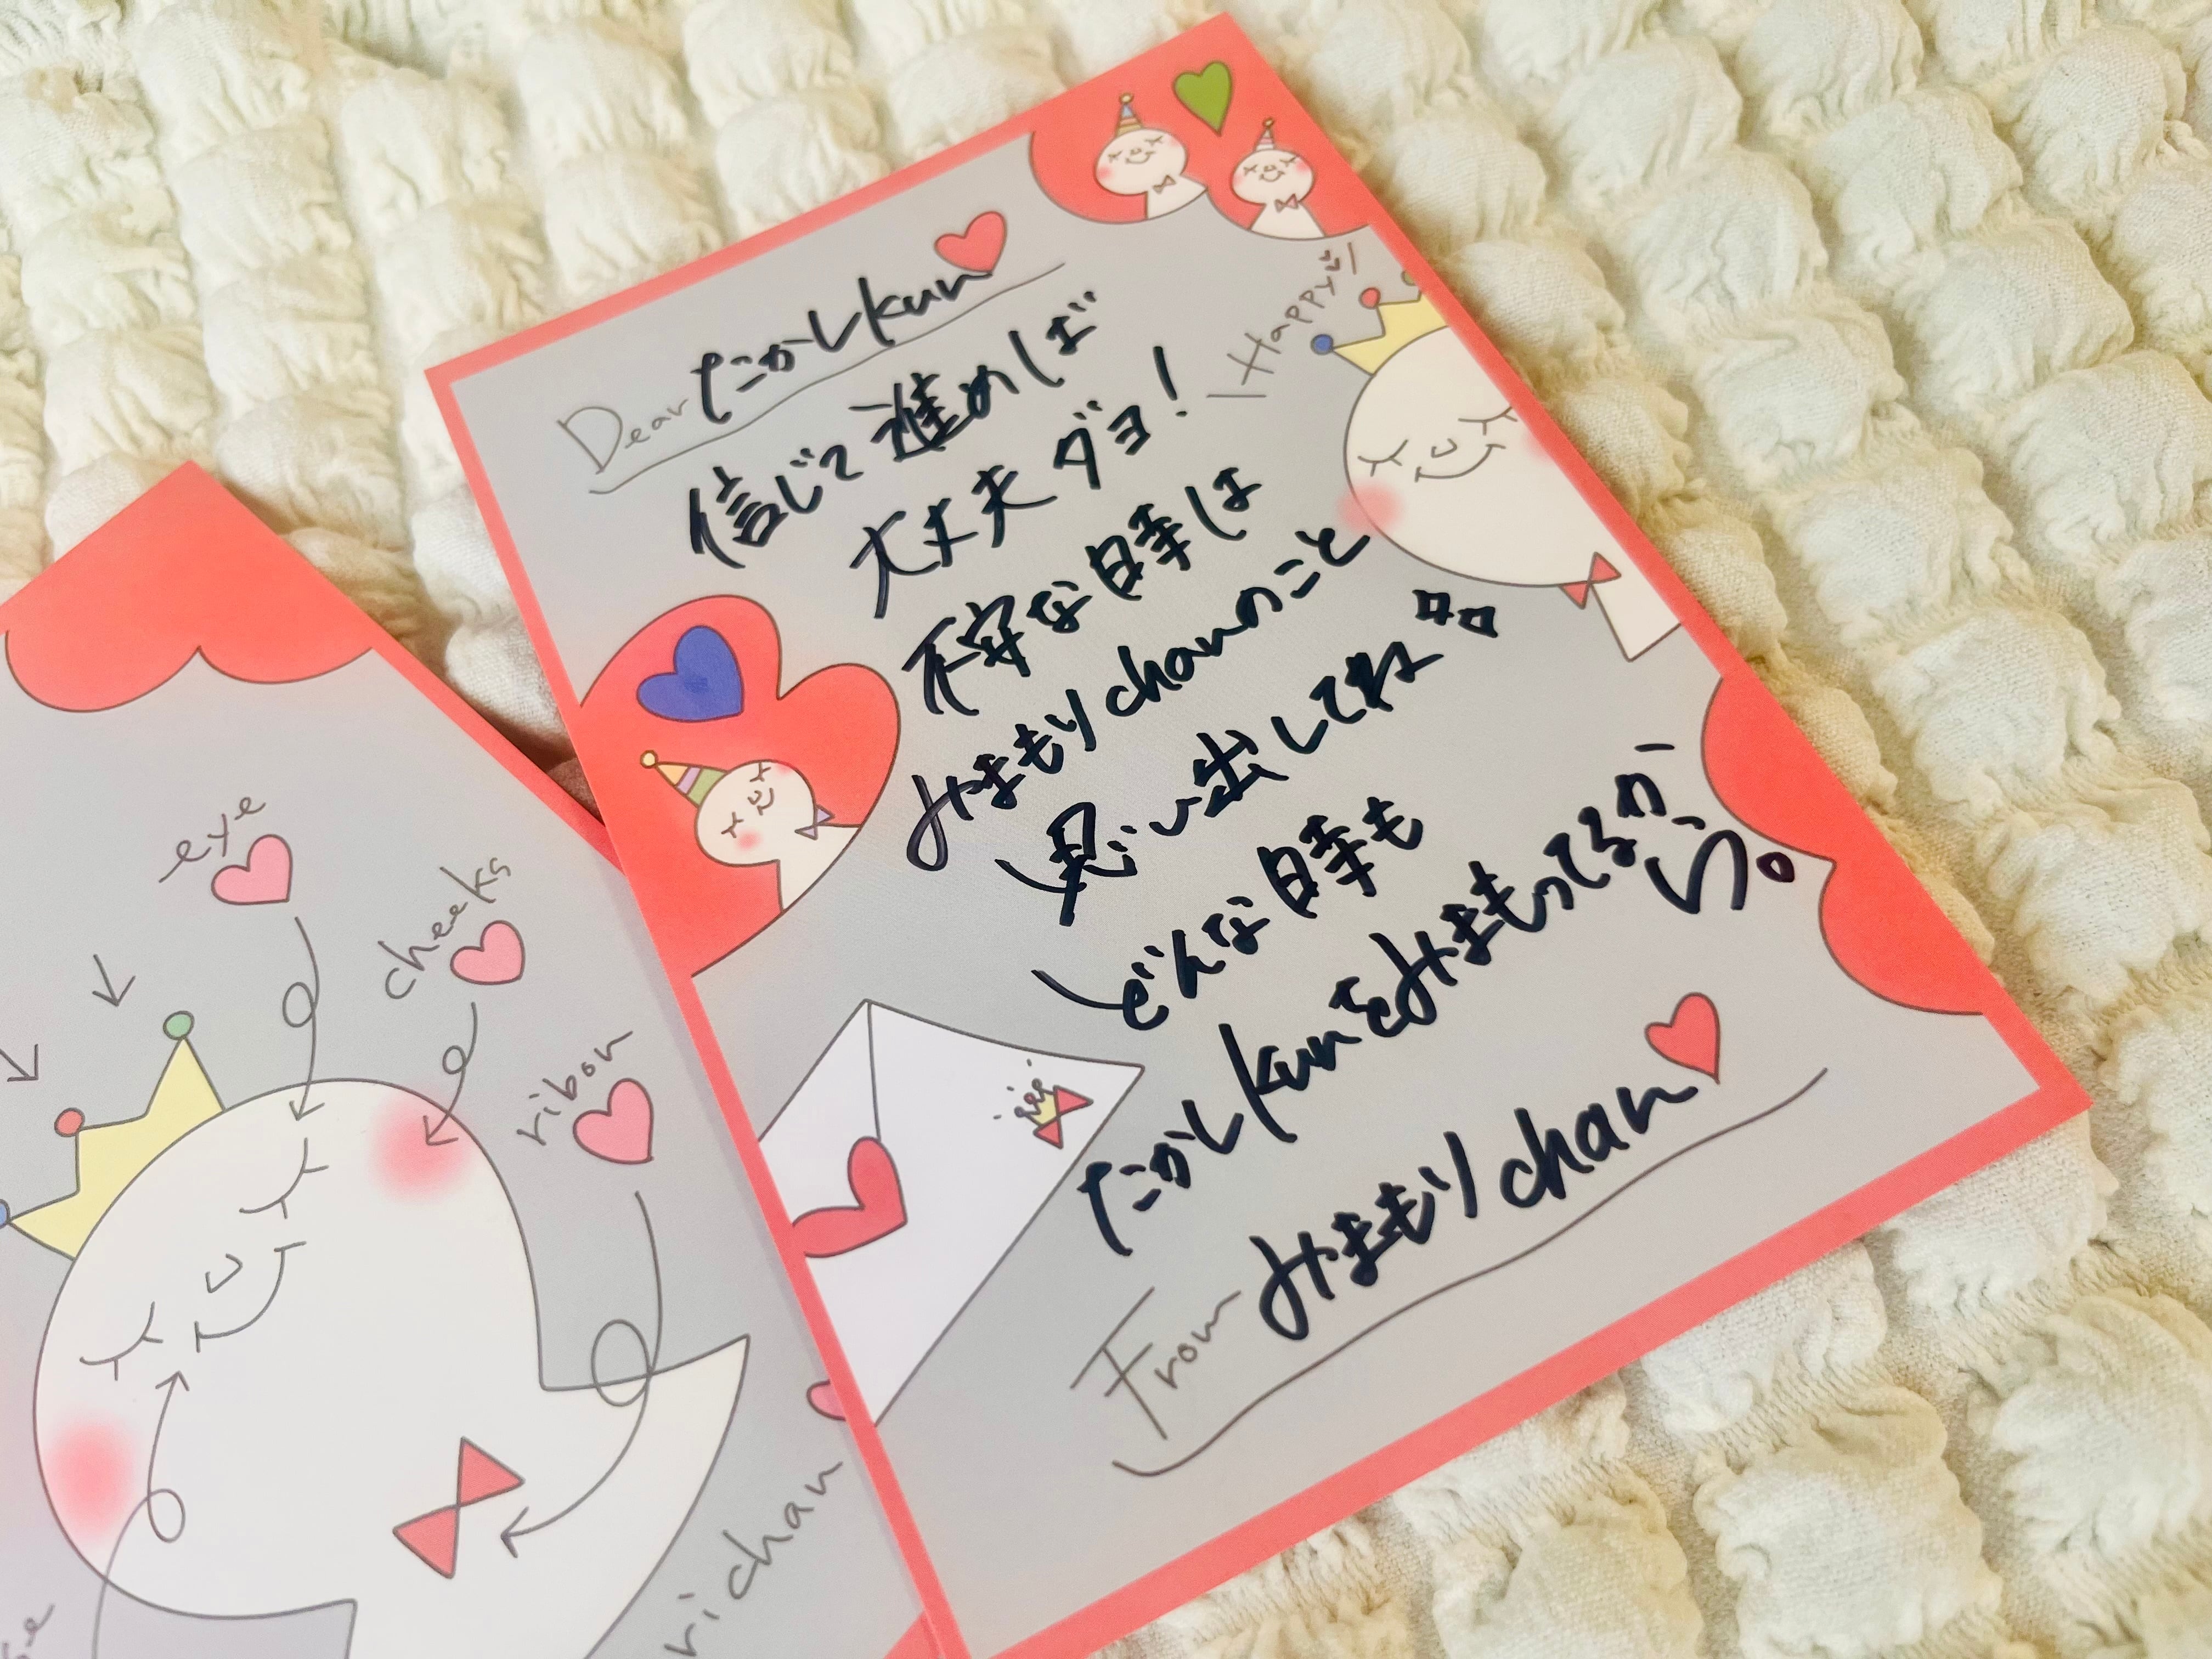 Dear たかしkun
信じて進めば
大丈夫ダヨ!
不安な時は
みまもりchanのこと
思い出してね
どんな時も
たかしkunをみまもってるか
ら。
From みまもりchan
Happy
eye
cheeks
ribon
richan